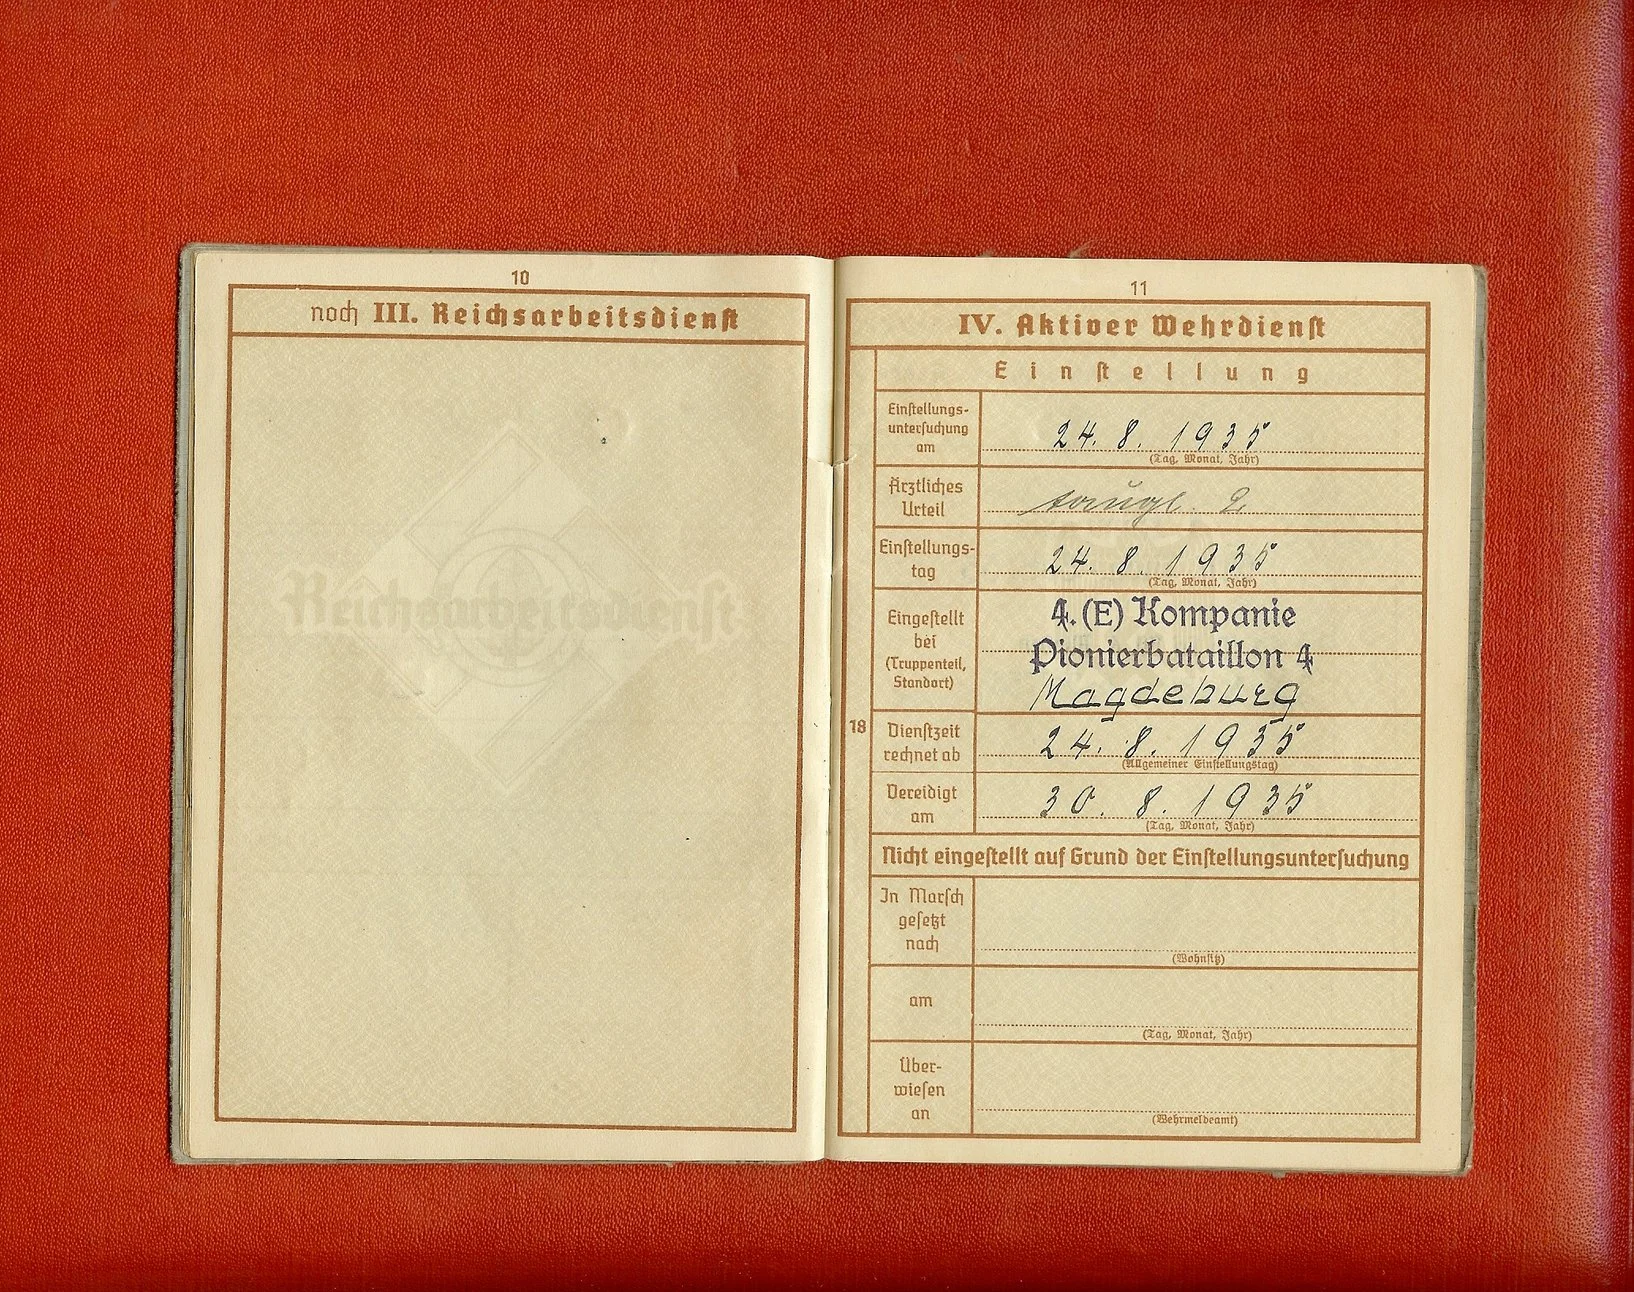 10
noch III. Reichsarbeitsdienst
Reichsarbeitsdienst
11
IV. Aktiver Wehrdienst
Einstellung
Einstellungs-
untersuchung
am
24. 8. 1935
(Tag, Monat, Jahr)
Ärztliches
Urteil
taugl. 2
Einstellungs-
tag
24. 8. 1935
(Tag, Monat, Jahr)
Eingestellt
bei
(Truppenteil,
Standort)
4. (E) Kompanie
Pionierbataillon 4
Magdeburg
18
Dienstzeit
rechnet ab
24. 8. 1935
(Allgemeiner Einstellungstag)
Vereidigt
am
30. 8. 1935
(Tag, Monat, Jahr)
Nicht eingestellt auf Grund der Einstellungsuntersuchung
In Marsch
gesetzt
nach
(Wohnsitz)
am
(Tag, Monat, Jahr)
Über-
wiesen
an
(Wehrmeldeamt)